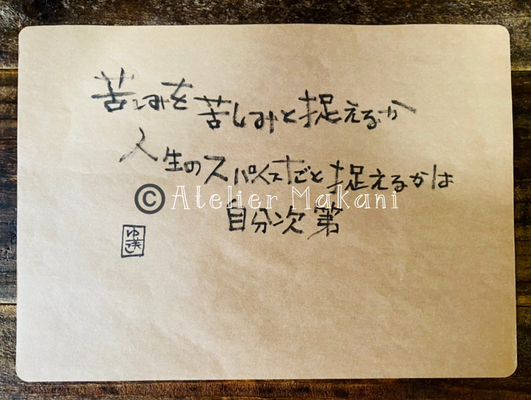 苦しみを苦しみと捉えるか
人生のスパイスだと捉えるかは
© Atelier Makani
自分次第